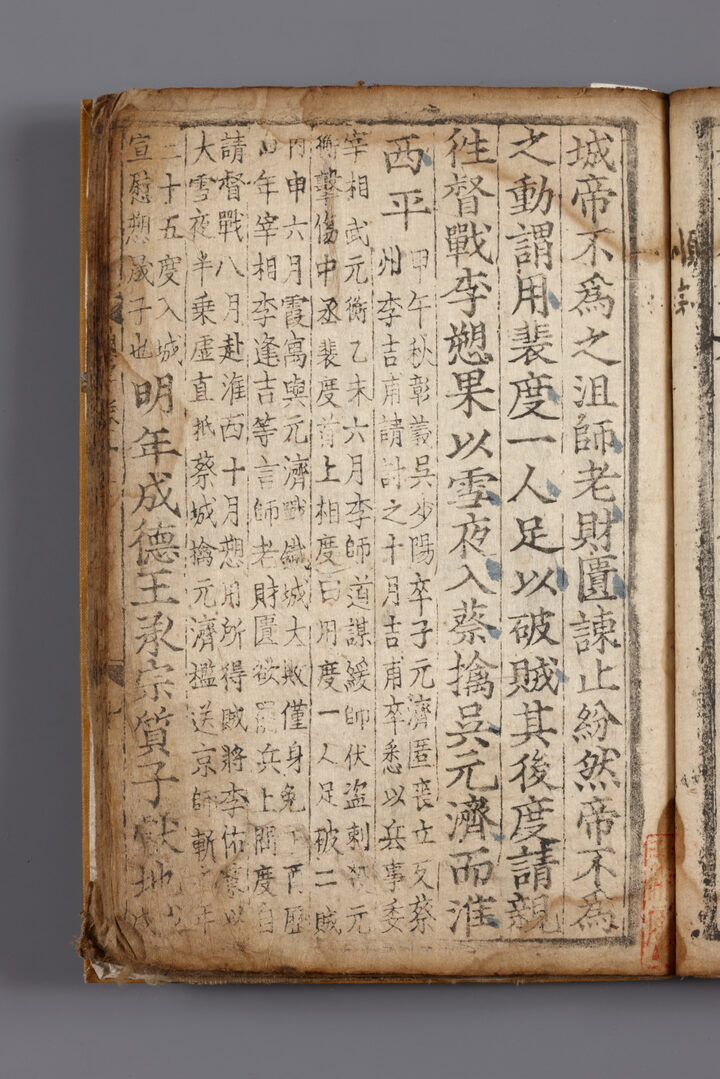 城帝不爲之沮師老財匱諫止紛然帝不爲
之動謂用裴度一人足以破賊其後度請親
徃督戰李愬果以雪夜入蔡擒吳元濟而淮
西平
甲午秋彰義吳少陽卒子元濟匿喪立反蔡
州李吉甫請討之十月吉甫卒悉以兵事委
宰相武元衡乙未六月李師道謀緩師伏盜刺殺元
衡擊傷中丞裴度首上相度曰用度一人足破二賊
丙申六月霞寓與元濟戰鐵城大敗僅身免
年宰相李逢吉等言師老財匱欲罷兵上問度自
請督戰八月赴淮西十月愬用所得賊將李佑
大雪夜半乗虛直抵蔡城擒元濟檻送京師斬
二十五度入城
宣慰愬歲子也
明年成德王承宗質子獻地
順宗